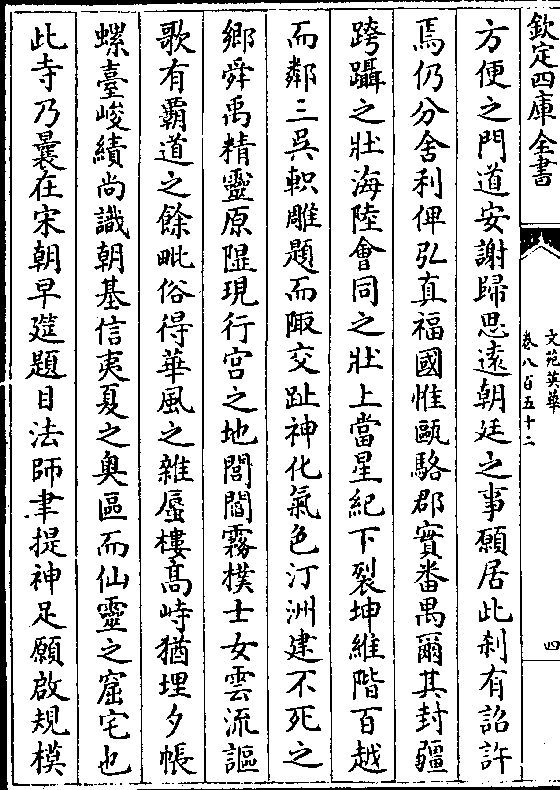 欽定四庫全書
文苑英華
卷八百五十二
四
方便之門道安謝歸思遠朝廷之事願居此刹有詔許
焉仍分舍利俾弘真福國惟甌駱郡實番禺爾其封疆
跨躡之壯海陸會同之壯上當星紀下裂坤維階百越
而鄰三吳軹雕題而陬交趾神化氣色汀洲建不死之
鄉舜禹精靈原隰現行宫之地閭閻霧樸士女雲流謳
歌有霸道之餘毗俗得華風之雜蜃樓髙峙猶埋夕帳
螺臺峻績尚識朝基信夷夏之奥區而仙靈之窟宅也
此寺乃曩在宋朝早筵題目法師聿提神足願啟規模